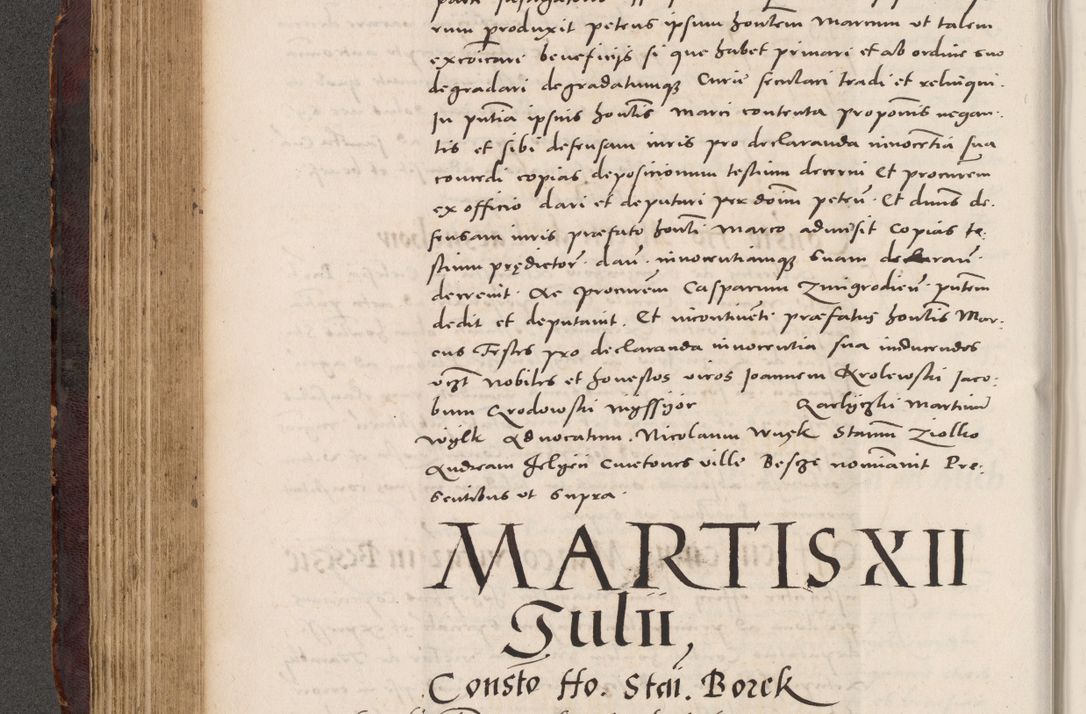 rum produxit petens ipsum honlem Marcum ut talem
excoicari beneficiis si que habet privari et ab ordine suo
degradari degradatumque Curie seculari tradi et relinqui.
In pntia ipsius honlis Marci contenta proponis negan-
tis et sibi defensam iuris pro declaranda innocentia sua
concedi copias depositionum testium decerni Et procurem
ex officio dari et deputari per doim peten. Et dnus de-
fensam iuris praefato honli Marco admisit Copias te-
stium predictor. dan. innocentiamque suam declaran.
decrevit. Ac procurem Casparum Zmigrodien. pntem
dedit et deputavit. Et incontinenti praefatus honlis Mar-
cus Testes pro declaranda innocentia sua inducendos
vizt Nobiles et honestos viros Joannem Krolewski Jaco-
bum Grodowski Martinu
Wylk Advocatum. Nicolaum Stanm Ziollio
Andream Cmetones ville Besze nominavit Pre-
sentibus ut supra.
MARTIS XII
Iulii,
Consto Ho. Stai. Borek